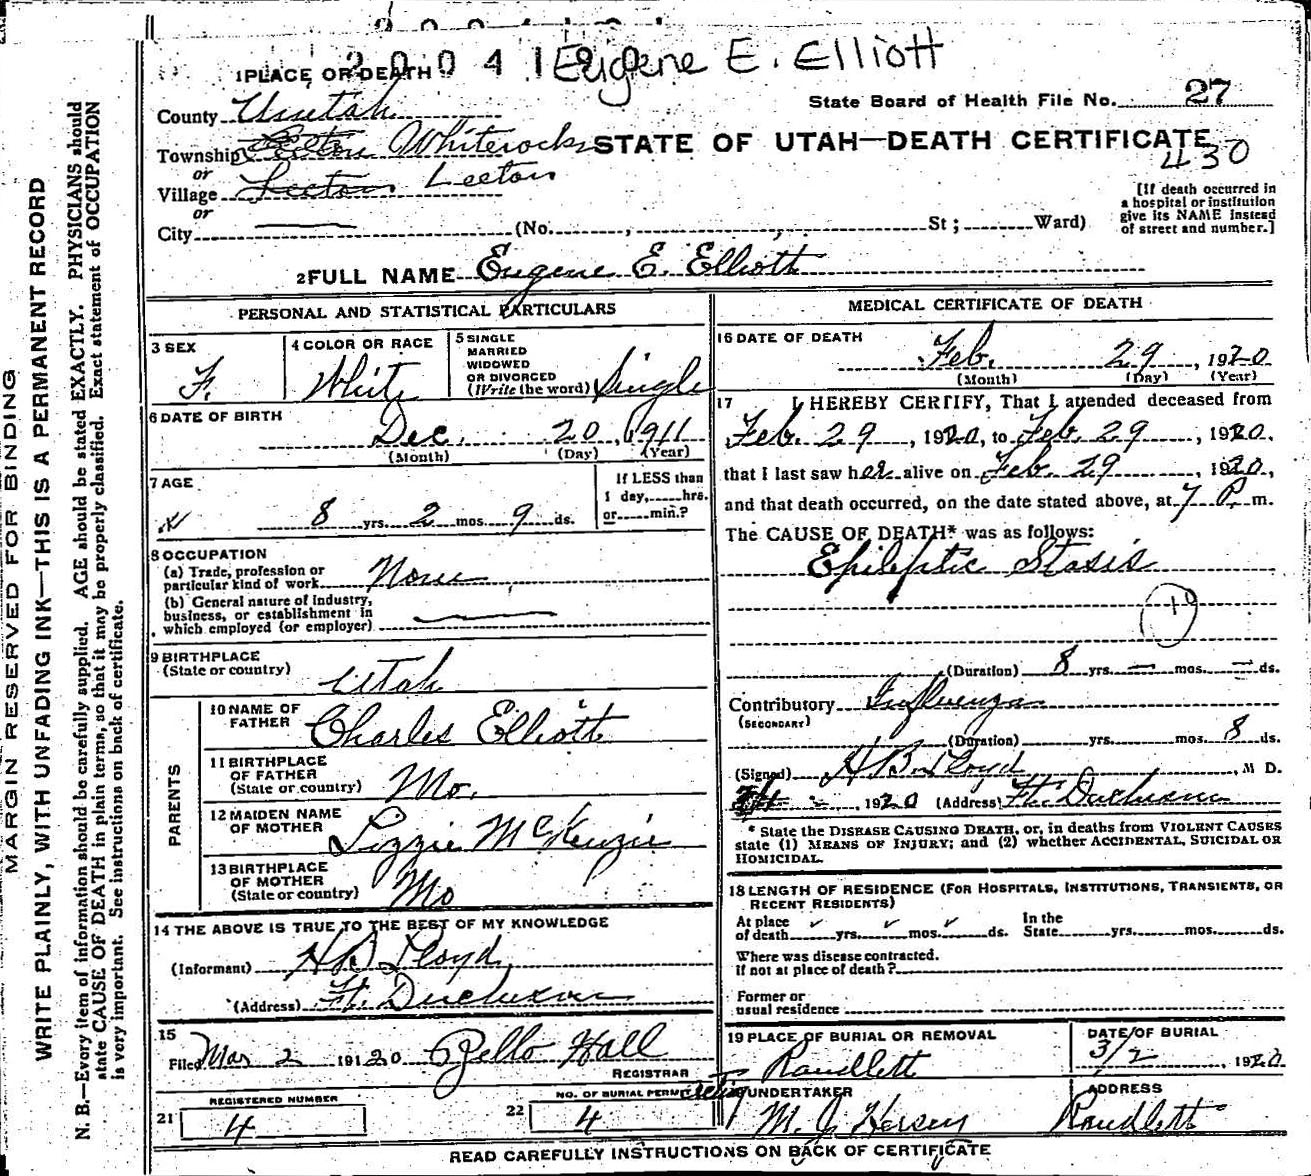 2 0 0 4 1 9 0 Eugene E. Elliott
1 PLACE OF DEATH
State Board of Health File No. 27
County Uintah
Township Whiterocks STATE OF UTAH—DEATH CERTIFICATE
430
or
Village Leeton Leeton
or
[If death occurred in
a hospital or institution
give its NAME instead
of street and number.]
City (No. , St ; Ward)
2 FULL NAME Eugene E. Elliott
PERSONAL AND STATISTICAL PARTICULARS
3 SEX
F.
4 COLOR OR RACE
White
5 SINGLE
MARRIED
WIDOWED
OR DIVORCED
(Write the word) Single
6 DATE OF BIRTH
Dec. 20, 1911
(Month) (Day) (Year)
7 AGE
8 yrs. 2 mos. 9 ds.
If LESS than
1 day, hrs.
or min.?
8 OCCUPATION
(a) Trade, profession or
particular kind of work None
(b) General nature of industry,
business, or establishment in
which employed (or employer)
9 BIRTHPLACE
(State or country) Utah
PARENTS
10 NAME OF
FATHER Charles Elliott
11 BIRTHPLACE
OF FATHER
(State or country) Mo.
12 MAIDEN NAME
OF MOTHER Lizzie McKenzie
13 BIRTHPLACE
OF MOTHER
(State or country) Mo
14 THE ABOVE IS TRUE TO THE BEST OF MY KNOWLEDGE
(Informant) H B Lloyd
(Address) Ft. Duchesne
15
Filed Mar 2 191 20 Ozello Hall
REGISTRAR
21 REGISTERED NUMBER
4
22 NO. OF BURIAL PERMIT
4
MEDICAL CERTIFICATE OF DEATH
16 DATE OF DEATH
Feb. 29, 1920
(Month) (Day) (Year)
17 I HEREBY CERTIFY, That I attended deceased from
Feb. 29, 1920, to Feb. 29, 1920,
that I last saw her alive on Feb. 29, 1920,
and that death occurred, on the date stated above, at 7 P. m.
The CAUSE OF DEATH* was as follows:
Epileptic Stasis
10
(Duration) 8 yrs. — mos. — ds.
Contributory Influenza
(SECONDARY)
(Duration) yrs. mos. 8 ds.
(Signed) H B Lloyd, M D.
, 1920 (Address) Ft. Duchesne
* State the DISEASE CAUSING DEATH, or, in deaths from VIOLENT CAUSES
state (1) MEANS OF INJURY; and (2) whether ACCIDENTAL, SUICIDAL OR
HOMICIDAL.
18 LENGTH OF RESIDENCE (FOR HOSPITALS, INSTITUTIONS, TRANSIENTS, OR
RECENT RESIDENTS)
At place
of death yrs. mos. ds. In the
State yrs. mos. ds.
Where was disease contracted.
if not at place of death?
Former or
usual residence
19 PLACE OF BURIAL OR REMOVAL
Randlett
DATE OF BURIAL
3/2, 1920
UNDERTAKER
ADDRESS
Randlett
READ CAREFULLY INSTRUCTIONS ON BACK OF CERTIFICATE
MARGIN RESERVED FOR BINDING
WRITE PLAINLY, WITH UNFADING INK—THIS IS A PERMANENT RECORD
N. B.—Every item of information should be carefully supplied. AGE should be stated EXACTLY. PHYSICIANS should
state CAUSE OF DEATH in plain terms, so that it may be properly classified. Exact statement of OCCUPATION
is very important. See instructions on back of certificate.